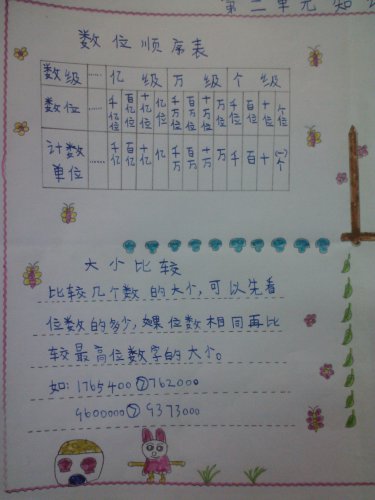 第二单元 知
数位顺序表
数级 …… 亿级 万级 个级
数位 …… 千亿位 百亿位 十亿位 亿位 千万位 百万位 十万位 万位 千位 百位 十位 个位
计数单位 …… 千亿 百亿 十亿 亿 千万 百万 十万 万 千 百 十 (一)个
大小比较
比较几个数的大小,可以先看
位数的多少,如果位数相同再比
较最高位数字的大小。
如: 1765400>762000
9600000>9373000